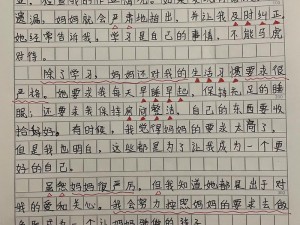 业，
遗漏。妈妈就会严肃地指出，并让我及时纠正。
她经常告诉我，学习是自己的事情，不能马虎
对待。
除了学习，妈妈还对我的生活习惯要求很
严格。她要求我每天早睡早起，保持充足的睡
眠；还要求我保持房间整洁，自己的东西要收
拾好。有时候，我觉得妈妈的要求太高了，
但是我也明白，这些都是为了让我成为一个更
好的自己。
虽然妈妈很严厉，但我知道她都是出于对
我的爱和关心。我会努力按照妈妈的要求去做，